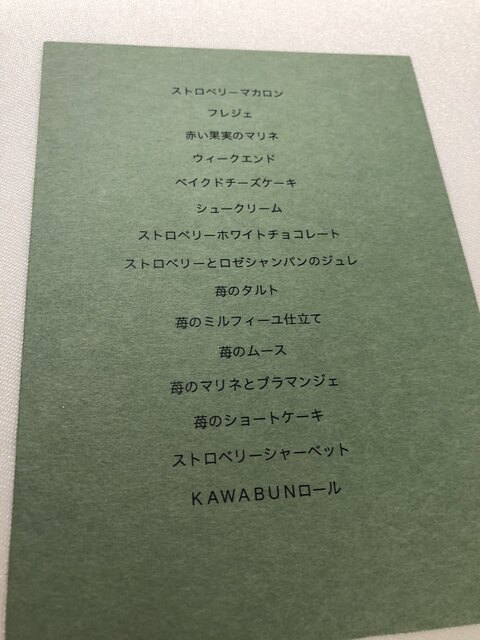 ストロベリーマカロン
フレジェ
赤い果実のマリネ
ウィークエンド
ベイクドチーズケーキ
シュークリーム
ストロベリーホワイトチョコレート
ストロベリーとロゼシャンパンのジュレ
苺のタルト
苺のミルフィーユ仕立て
苺のムース
苺のマリネとブラマンジェ
苺のショートケーキ
ストロベリーシャーベット
ＫＡＷＡＢＵＮロール